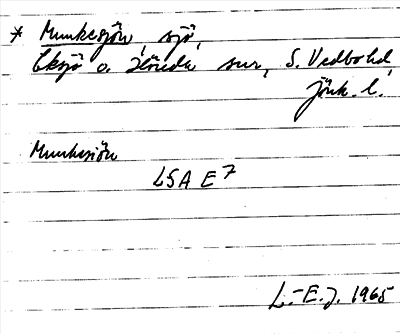 * Munkesjön, sjö,
Eksjö o. Höreda snr, S. Vedbo hd,
Jönk. l.
Munkesjön
LSA E7
L.-E.J. 1965